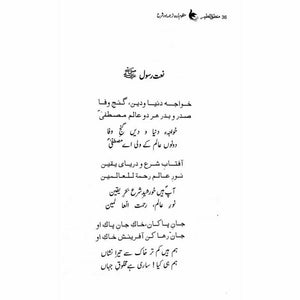 36 منطق الطیر
نعت رسول ﷺ
خواجه دنیا ودین، گنج وفا
صدر و بدر هر دو عالم مصطفیٰ
خواجۂ دنیا و دیں گنج وفا
دونوں عالم کے ولی اے مصطفیٰ
آفتاب شرع و دریای یقین
نور عالم رحمة للعالمین
آپؐ ہیں خورشید شرع بحر یقین
نور عالم، رحمت العا لمین
جان پاکان، خاك جان پاك او
جان رها کن آفرینش خاك او
ہم ہیں کم تر خاک سے تیرا نشاں
ہم ہی کیا! ساری ہے مخلوق جہاں